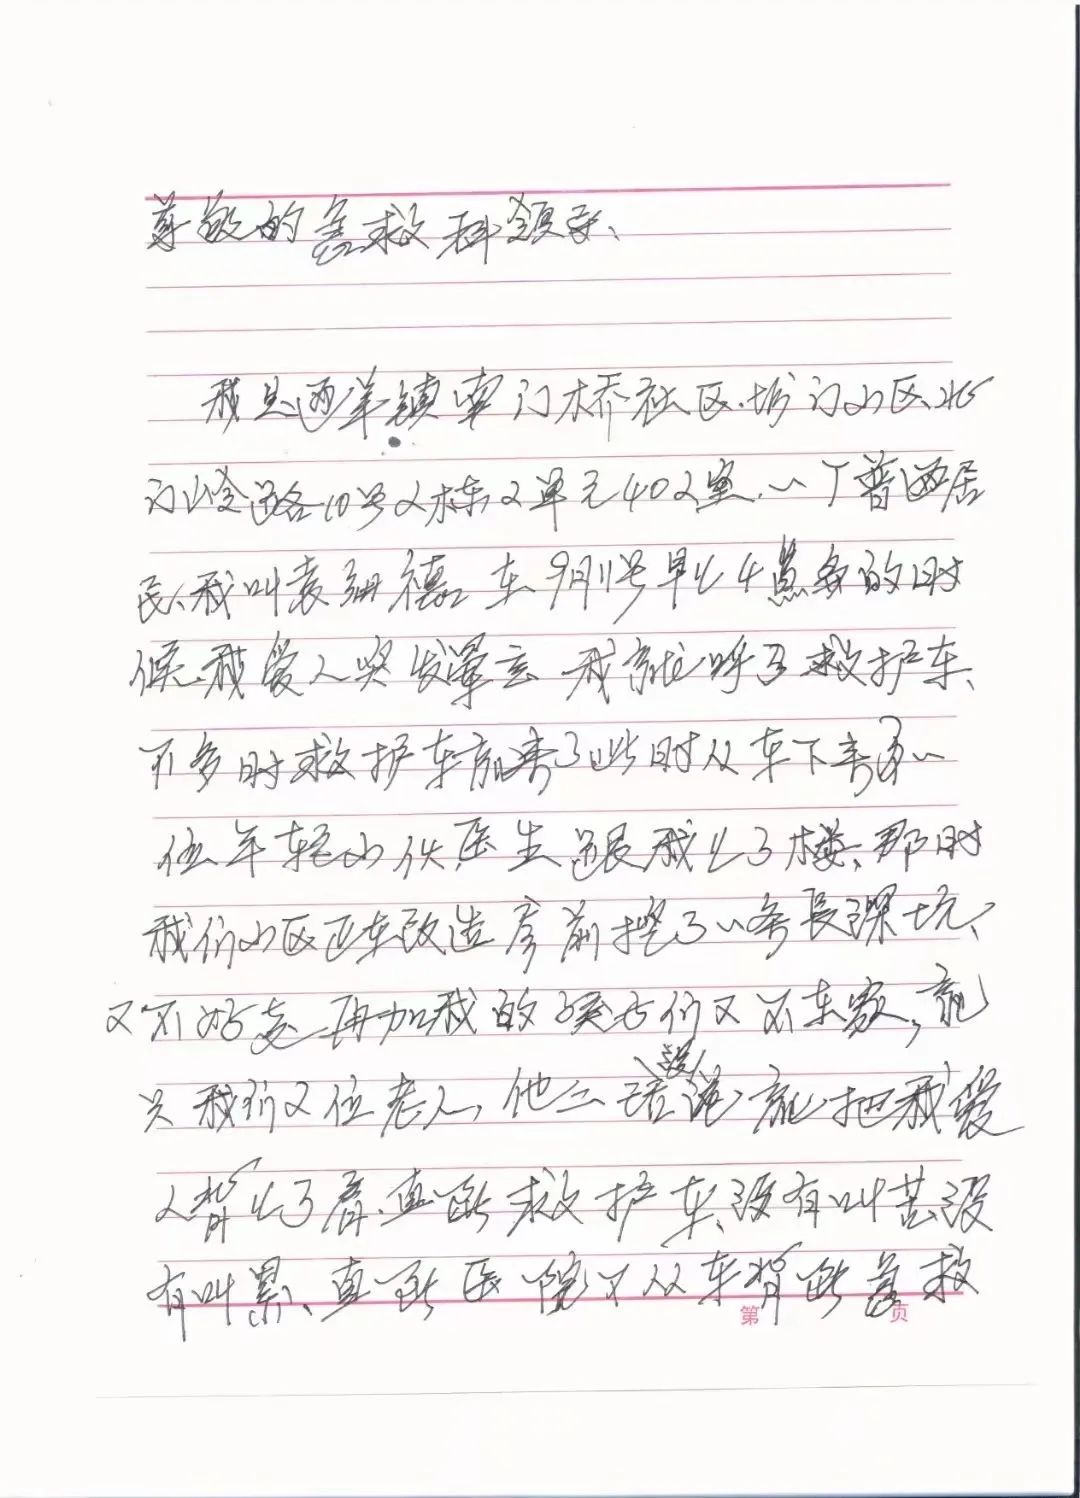 尊敬的急救科领导、
我是西洋镇南门桥社区.坊门小区北
门岭路10号2栋2单元402室.一个普通居
民、我叫袁 德 在9月11号早上4点多的时
候.我爱人突发晕 我就呼了救护车、
不多时救护车就来了此时从车下来了一
位年轻小伙医生 跟我上了楼、那时
我们小区正在改造 前挖了一条长深坑、
又不好走 再加我的孩子们又不在家，就
只我们2位老人，他二话没说就把我爱
人背上了肩.直到救护车、没有叫苦没
有叫累、直到医院又从车背到急救
第 页